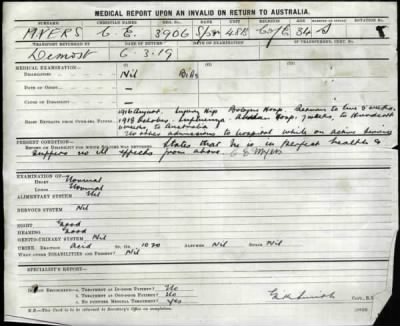 MEDICAL REPORT UPON AN INVALID ON RETURN TO AUSTRALIA.
SURNAME CHRISTIAN NAMES NO. RANK UNIT RELIGION AGE ROTATION NO.
MYERS C. E. 3906 Spr 48B C of E 34 S
TRANSPORT RETURNED BY DATE OF RETURN
Demost 6.3.19
MEDICAL EXAMINATION:—
DISABILITIES Nil
DATE OF —
CAUSE OF —
SHORT EXTRACTS FROM OVERSEA PAPERS 1916 August. Injury Hip Bologne Hosp. Returns to line 3 weeks.
1918 October. Influenza. Hosp. 7 weeks, to
weeks, to Australia
No other admissions to hospital while on active service
PRESENT CONDITION
REPORT ON DISABILITY FOR WHICH SOLDIER WAS RETURNED States that he is in perfect health &
suffers no ill effects from above. C E Myers
EXAMINATION OF
HEART Normal
LUNGS Normal
ALIMENTARY SYSTEM Nil
NERVOUS SYSTEM Nil
SIGHT Good
HEARING Good
GENITO-URINARY SYSTEM Nil
URINE. REACTION Acid SP. GR. 1020 ALBUMEN Nil SUGAR Nil
WHAT OTHER DISABILITIES AND PRESENT? Nil
SPECIALIST'S REPORT
BOARD RECOMMENDS:—
1. TREATMENT AS IN-DOOR PATIENT? No
2. TREATMENT AS OUT-DOOR PATIENT? No
3. NO FURTHER MEDICAL TREATMENT? Yes
Smith CAPT.
N.B.—This Card to be returned to Secretary's Office on completion.